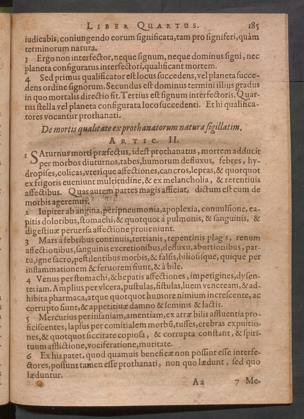 LIBER QUARTUS. 185
iudicabis, coniungendo eorum significata, tam pro signiferi, quàm
terminorum natura.
3 Ergo non intersector, neque signum, neque dominus signi, nec
planeta configuratus intersectori, qualificant mortem.
4 Sed primus qualificator est locus succedens, vel planeta succe-
dens ordine signorum. Secundus est dominus termini illius gradus
in quo mortalis directio sit. Tertius est signum intersectoris. Quar-
tus stella vel planeta configurata loco succedenti. Et hi qualifica-
tores vocantur prothanati.
De mortis qualitate ex prothanatorum natura sigillatim,
ARTIC. II.
1 SAturnus mortis præfectus, id est prothanatus, mortem adducit
per morbos diuturnos, tabes, humorum defluxus, febres, hy-
dropises, colicas, vterique affectiones, cancros, lepras, & quotquot
ex frigoris eueniunt multitudine, & ex melancholia, & retentiuis
affectibus. Quas autem partes magis afficiat, dictum est cum de
morbis ageremus.
2 Iupiter ab angina, peripneumonia, apoplexia, conuulsione, ca-
pitis doloribus, stomachi, & quotquot à pulmonis, & sanguinis, &
digestiuæ peruersa affectione proueniunt.
3 Mars à febribus continuis, tertianis, repentinis plagis, renum
affectionibus, sanguinis excretionibus, defluxu, abortionibus, par-
tu, igne sacro, pestilentibus morbis, & falsis, biliosisque, quique per
inflammationem & feruorem fiunt, & à bile.
4 Venus per stomachi, & hepatis affectiones, impetigines, dysen-
teriam. Amplius per vlcera, pustulas, fistulas, luem veneream, & ad-
hibita pharmaca, atque quotquot humore nimium increscente, ac
corrupto fiunt, & appetitiuæ damno & seminis & lactis.
5 Mercurius per insaniam, amentiam, ex atræ bilis affluentia pro-
ficiscentes, lapsus per comitialem morbũ, tusses, crebras expuitio-
nes, & quotquot siccitate copiosa, & corrupta constant, & spiri-
tuum affectione, vociferatione, mutatis.
6 Ex his patet, quod quamuis beneficæ non possint esse interfe-
ctores, possunt tamen esse prothanati, non quo lædunt, sed quo
læduntur.
Aa 7 Me-